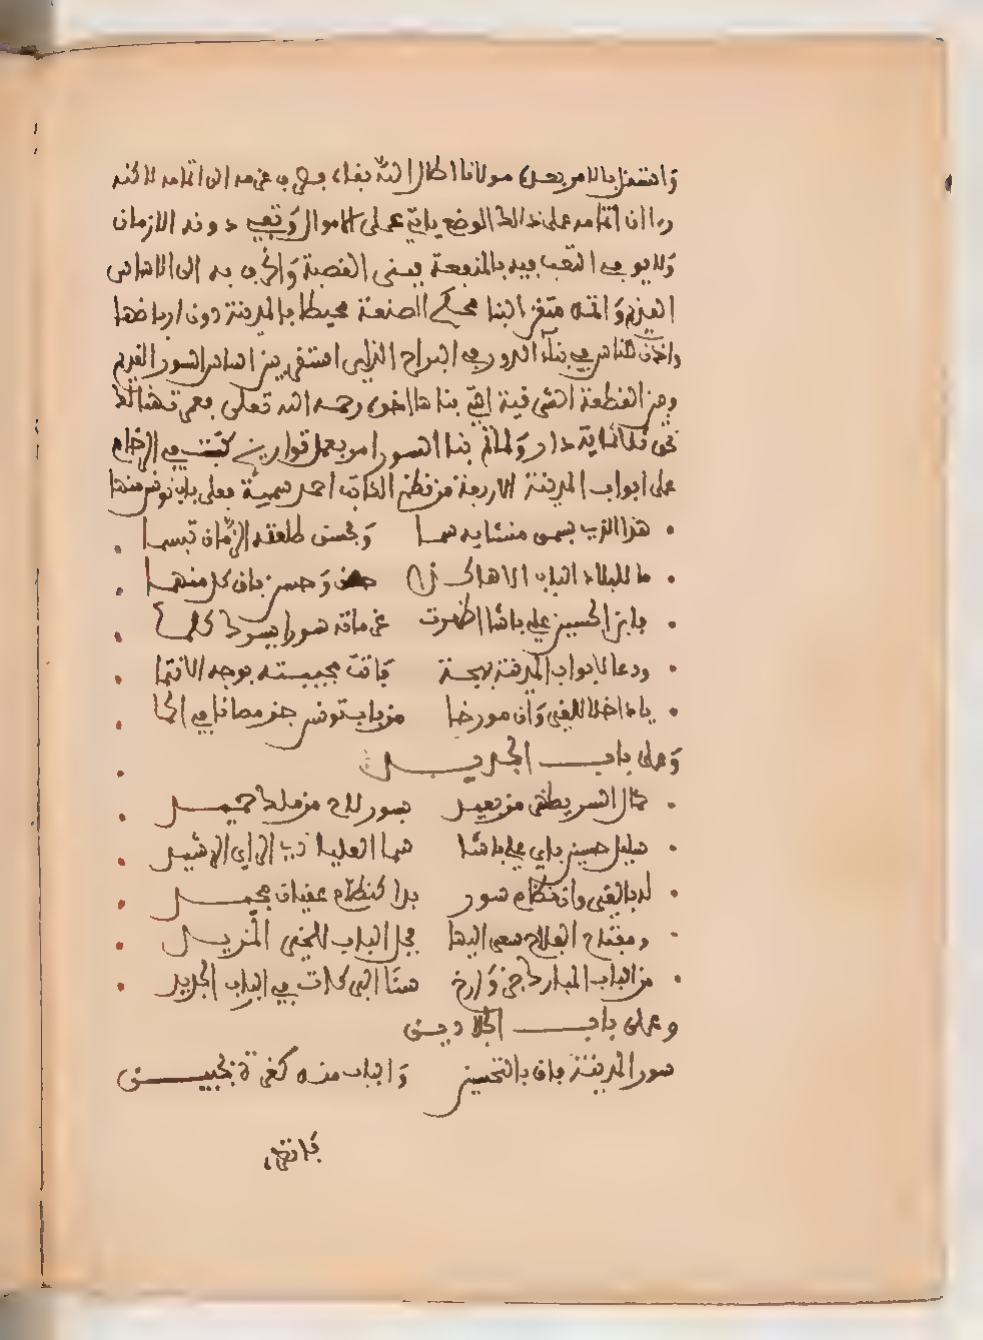 وَاستقل بالامر بعدہ مولانا اطال اللہ بقاہ بصرف عزمه الى اتمامه لاكنه
راا ان اتمامه على ذالك الوضع ياتي على الاموال وَتفني دونه الازمان
وَلا يوفي التعب فيه بالمنفعة فبنى القصبة وَ به الى الاساس
القديم وَاتمه متقن البنا محكم الصنعة محيطا بالمدينة دون ارباضها
واذن للناس في بنآء الدور في البراح الذي استقر بين اساس السور القديم
وبين القطعة الشرقية التي بناها اخوہ رحمه الله تعلى فعمرت هنالك
نحو ثلاثماية دار وَلما تم بنا السور امر بعمل تواريخ كتبت في الرخام
على ابواب المدينة الاربعة من نظم الكاتب احمد سمية فعلى باب تونس منها
هذا الذي بسمى منشايه سما وَبحسن طلعته الزمان تبسما
ما للبلاد الباب الا هاكذا حصن وَحسن بان كل منهما
يابن الحسين علي باشا اظهرت عزماته سورا يسود كلما
ودعا لابواب المدينة بهجة فاتت مجيبته بوجه الانتما
يا داخلا للقيروان مورخا من باب تونس جز مصانا في الحما
وَعلى باب الجديد
كمال السر يظهر من بعيد بسور لاح من ملك حميد
سليل حسين باي علي باشا سما العليا ذي الراي الرشيد
له بالقيروان نظام سور بدا كنظام عقيان بجيد
ومفتاح الفلاح سعى اليها فجل الباب للخير المزيد
من الباب المبارك جز وَارخ سنا البركات في الباب الجديد
وعلى باب الجلادين
سور المدينة بان بالتحسين وَالباب منه كغرة بجبين
فاتقى